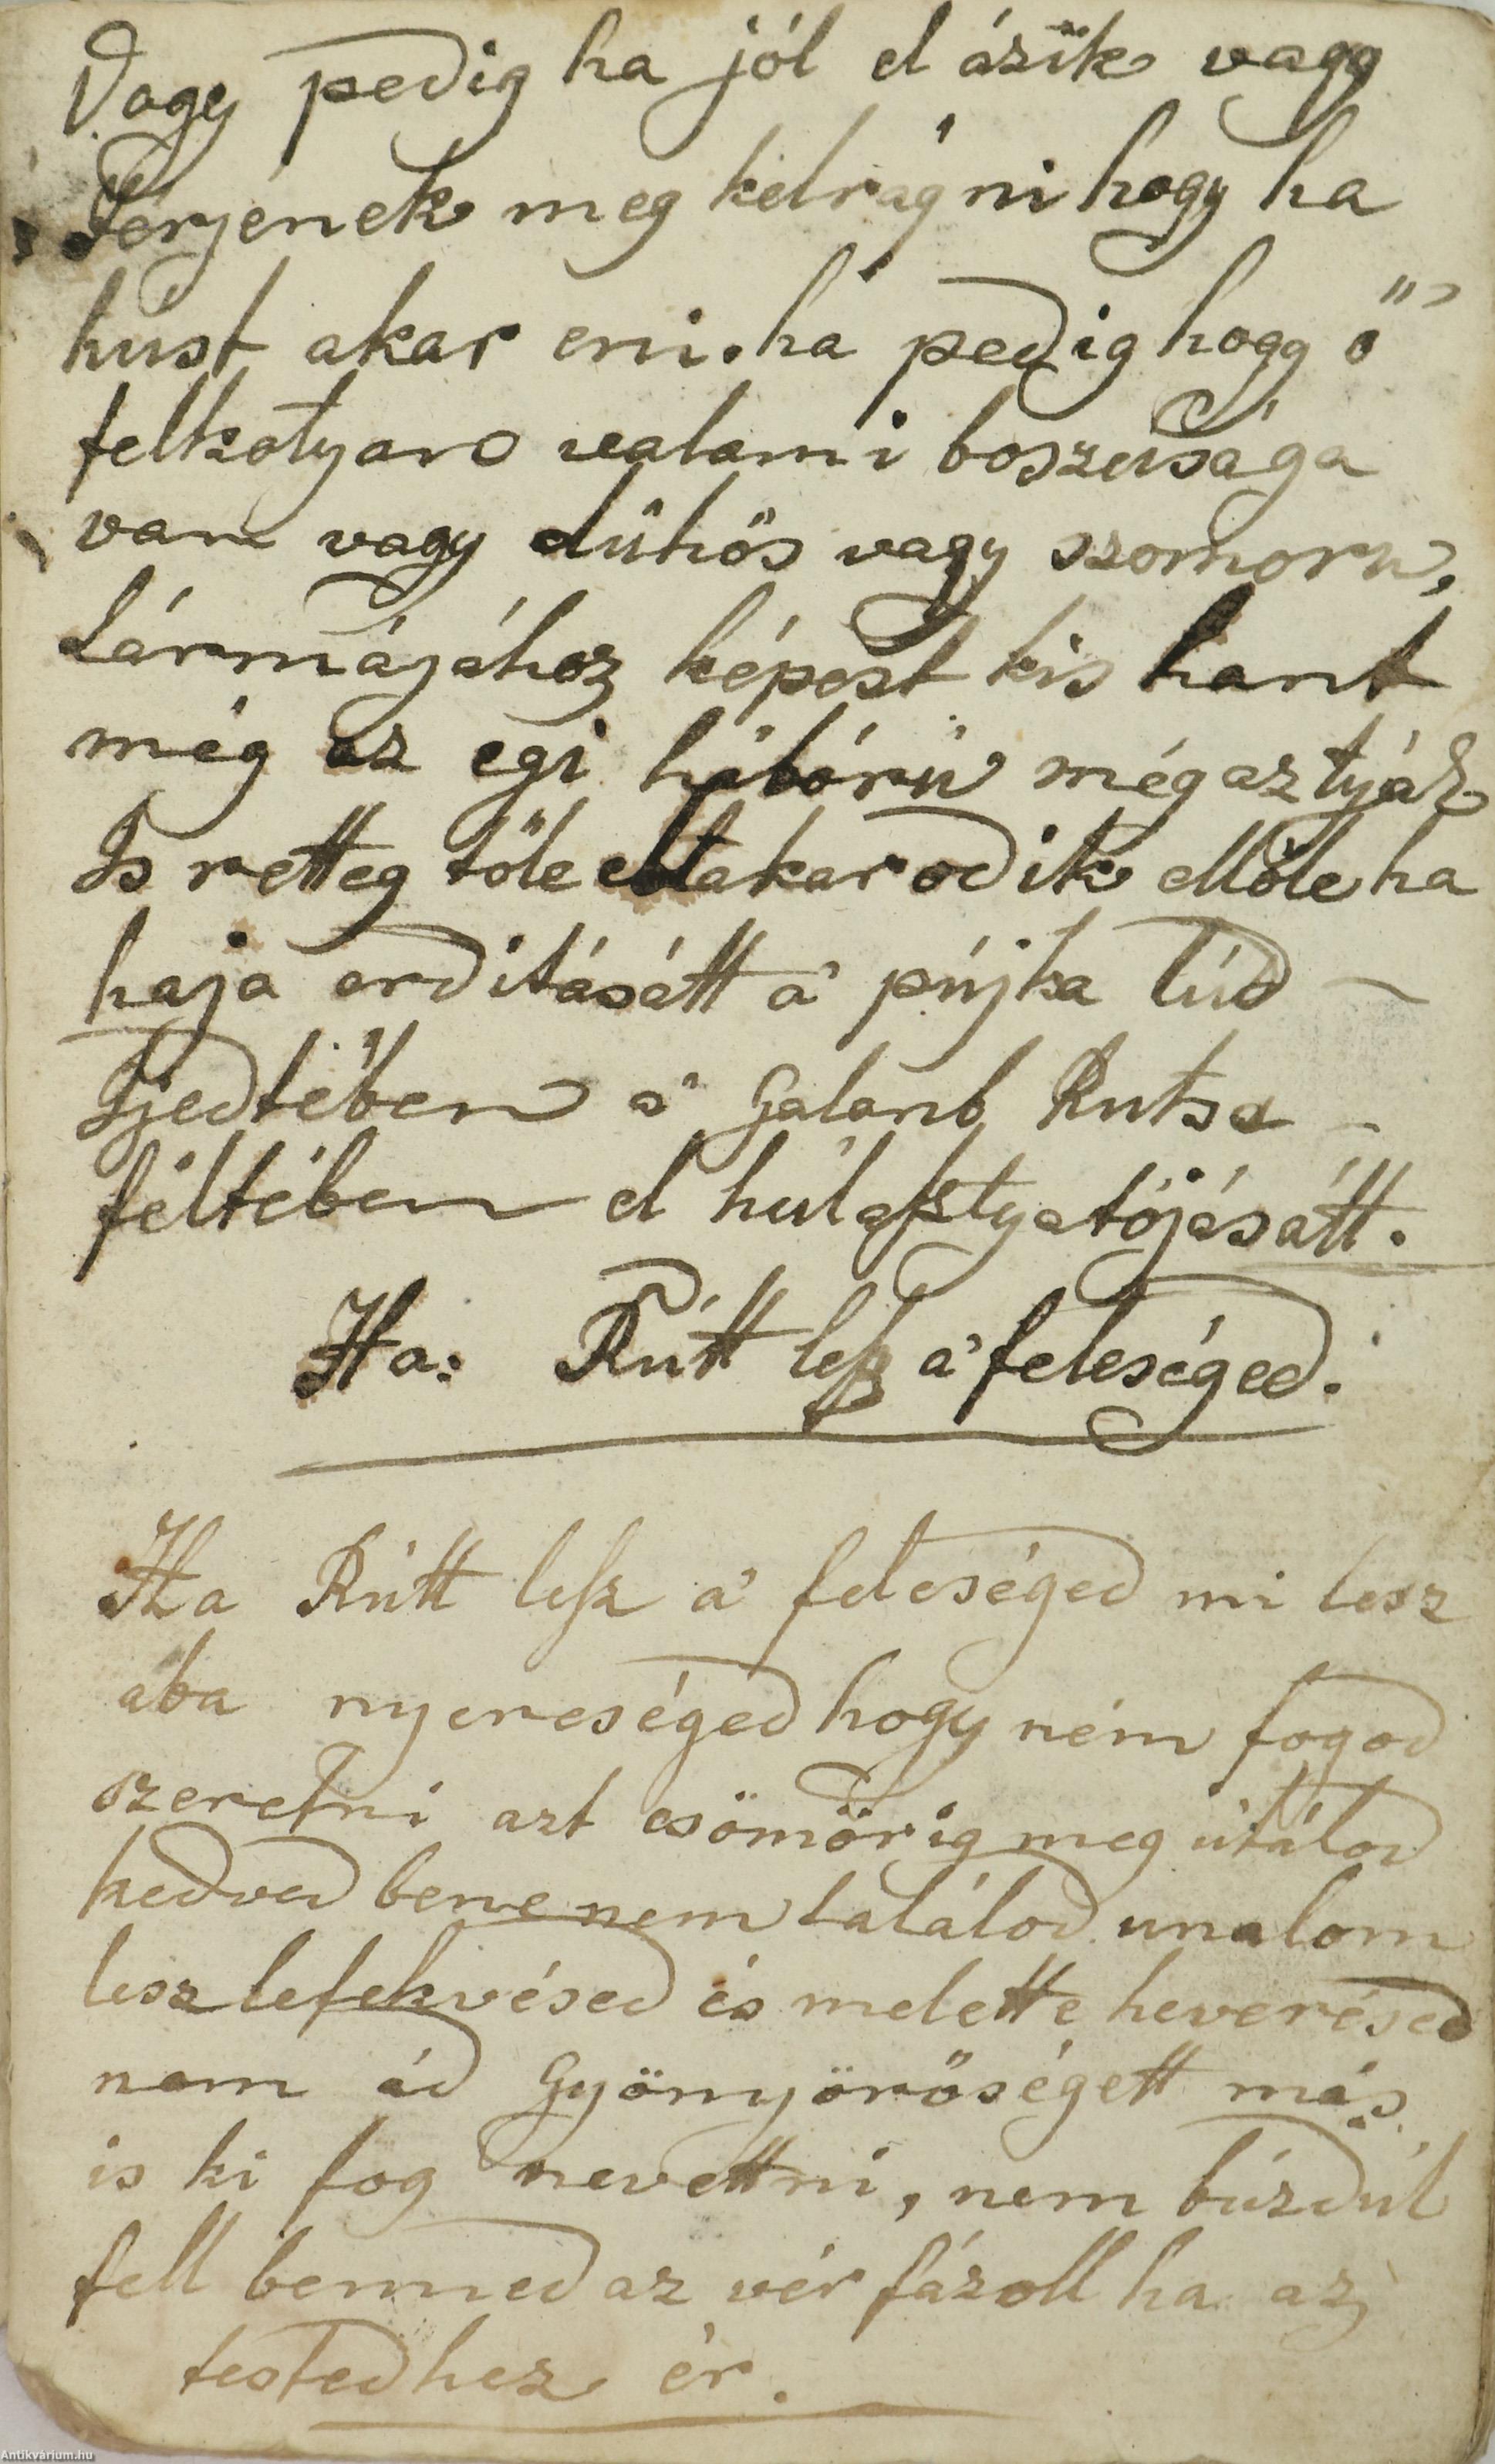 Vagy pedig ha jól el ázik vagy
Férjének meg kelrágni hogy ha
húst akar eni. ha pedig hogy ő
felkotyan valami boszúsága
van vagy dühös vagy szomorú,
Lármájához képest kis hant
még az egi háború még aztyúk
Is retteg tőle eltakarodik ellőle ha
haja orditásátt a' pújka lúd –
Ijedtében a' Galanb Rutsa –
féltében el húlaſztyatójásátt.
Ha: Rútt leſz a' feleséged.
Ha Rútt leſz a' feleséged mi lesz
aba nyereséged hogy ném fogod
szeretni azt csömörig meg útálod
kedved bene nem találod unalom
lesz lefekvésed és melette heverésed
nem ád Gyönyörőségett más
is ki fog nevettni, nem búzdúl
fell benned az vér fázoll ha az
testedhez ér.
Antikvárium.hu